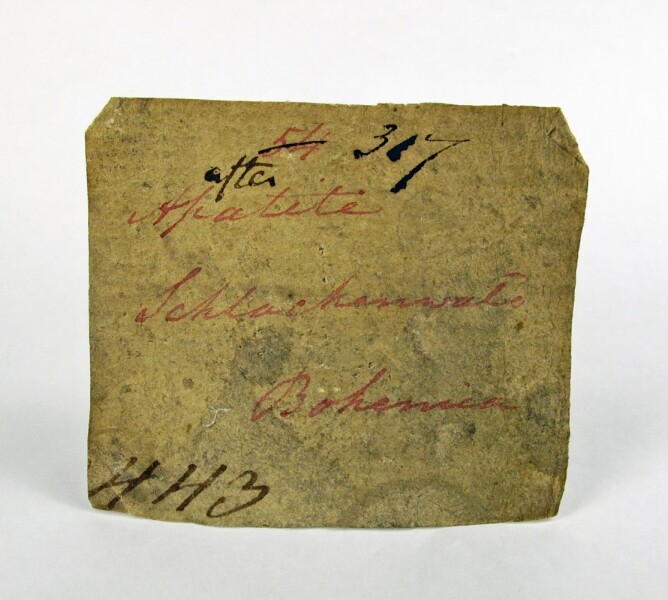 54 317
after
Apatite
Schlackenwald
Bohemia
443